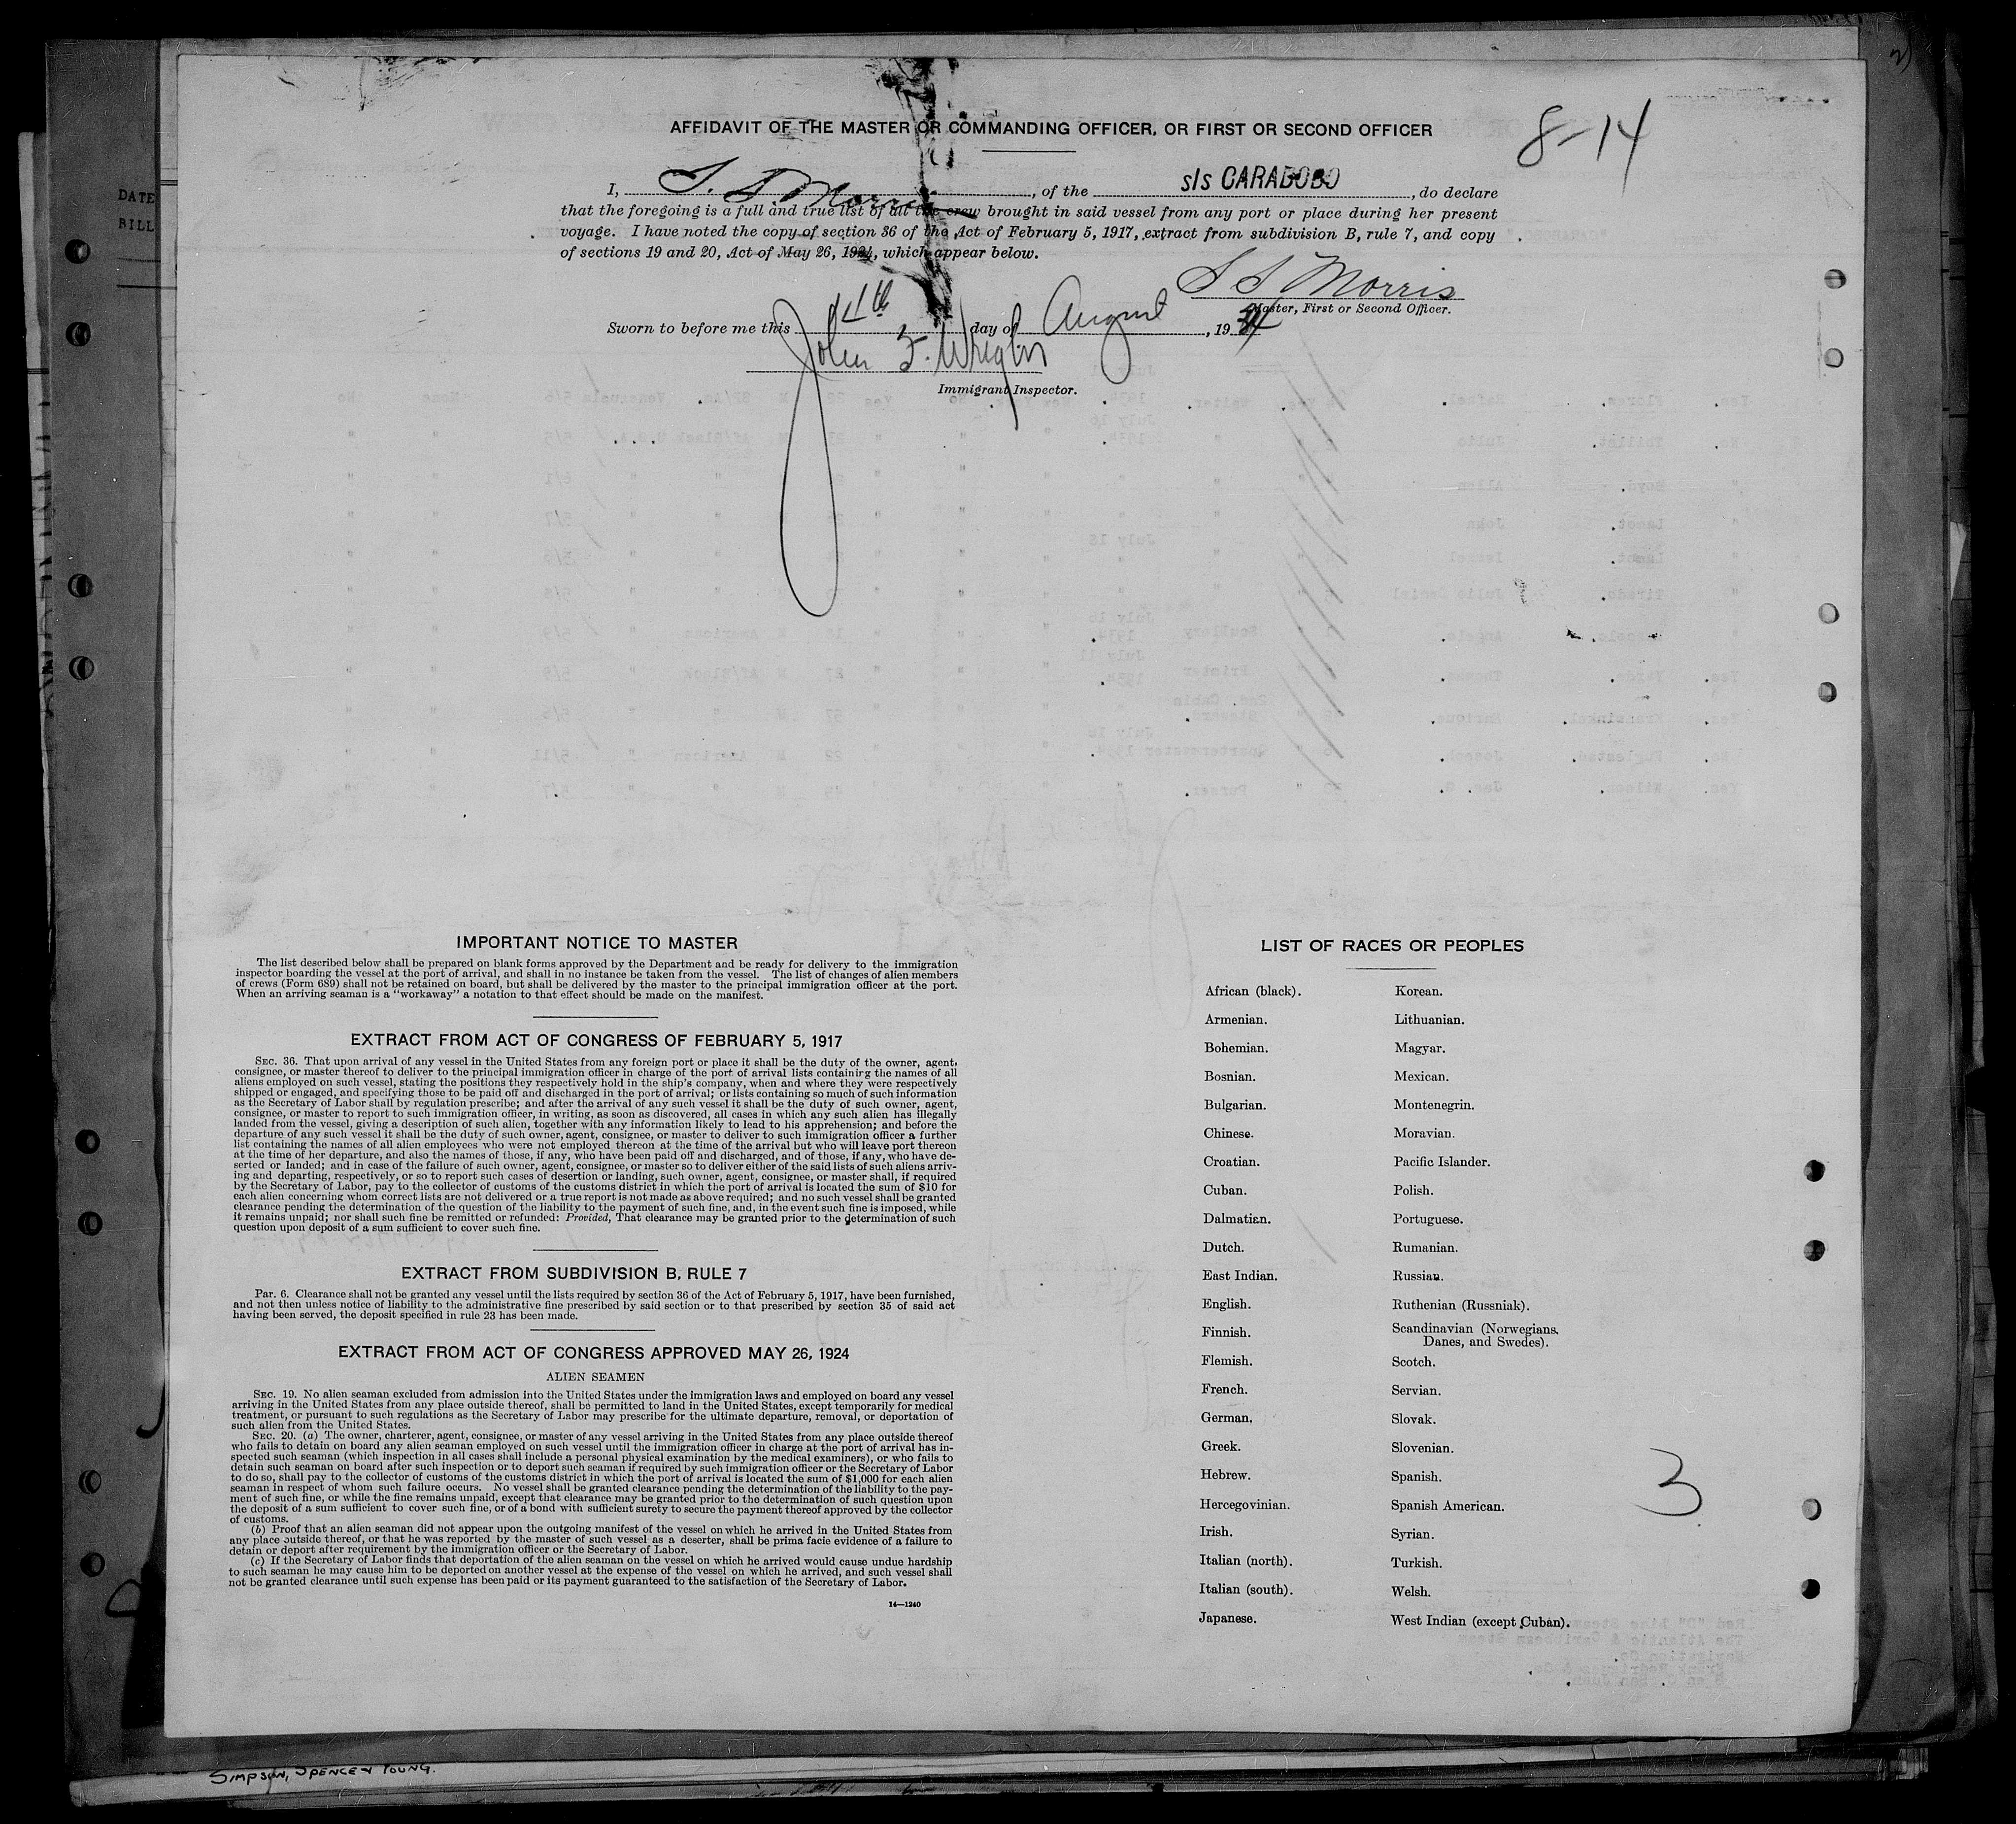 DATE
BILL
AFFIDAVIT OF THE MASTER OR COMMANDING OFFICER, OR FIRST OR SECOND OFFICER
8-14
I, S. S Morris, of the s/s CARABOBO, do declare
that the foregoing is a full and true list of all the crew brought in said vessel from any port or place during her present
voyage. I have noted the copy of section 36 of the Act of February 5, 1917, extract from subdivision B, rule 7, and copy
of sections 19 and 20, Act of May 26, 1924, which appear below.
S S Morris
Master, First or Second Officer.
Sworn to before me this day of August, 1934
John F. Wright
Immigrant Inspector.
IMPORTANT NOTICE TO MASTER
The list described below shall be prepared on blank forms approved by the Department and be ready for delivery to the immigration
inspector boarding the vessel at the port of arrival, and shall in no instance be taken from the vessel. The list of changes of alien members
of crews (Form 689) shall not be retained on board, but shall be delivered by the master to the principal immigration officer at the port.
When an arriving seaman is a "workaway" a notation to that effect should be made on the manifest.
EXTRACT FROM ACT OF CONGRESS OF FEBRUARY 5, 1917
SEC. 36. That upon arrival of any vessel in the United States from any foreign port or place it shall be the duty of the owner, agent,
consignee, or master thereof to deliver to the principal immigration officer in charge of the port of arrival lists containing the names of all
aliens employed on such vessel, stating the positions they respectively hold in the ship's company, when and where they were respectively
shipped or engaged, and specifying those to be paid off and discharged in the port of arrival; or lists containing so much of such information
as the Secretary of Labor shall by regulation prescribe; and after the arrival of any such vessel it shall be the duty of such owner, agent,
consignee, or master to report to such immigration officer, in writing, as soon as discovered, all cases in which any such alien has illegally
landed from the vessel, giving a description of such alien, together with any information likely to lead to his apprehension; and before the
departure of any such vessel it shall be the duty of such owner, agent, consignee, or master to deliver to such immigration officer a further
list containing the names of all alien employees who were not employed thereon at the time of the arrival but who will leave port thereon
at the time of her departure, and also the names of those, if any, who have been paid off and discharged, and of those, if any, who have de-
serted or landed; and in case of the failure of such owner, agent, consignee, or master so to deliver either of the said lists of such aliens arriv-
ing and departing, respectively, or so to report such cases of desertion or landing, such owner, agent, consignee, or master shall, if required
by the Secretary of Labor, pay to the collector of customs of the customs district in which the port of arrival is located the sum of $10 for
each alien concerning whom correct lists are not delivered or a true report is not made as above required; and no such vessel shall be granted
clearance pending the determination of the question of the liability to the payment of such fine, and, in the event such fine is imposed, while
it remains unpaid; nor shall such fine be remitted or refunded: Provided, That clearance may be granted prior to the determination of such
question upon deposit of a sum sufficient to cover such fine.
EXTRACT FROM SUBDIVISION B, RULE 7
PAR. 6. Clearance shall not be granted any vessel until the lists required by section 36 of the Act of February 5, 1917, have been furnished,
and not then unless notice of liability to the administrative fine prescribed by said section or to that prescribed by section 35 of said act
having been served, the deposit specified in rule 23 has been made.
EXTRACT FROM ACT OF CONGRESS APPROVED MAY 26, 1924
ALIEN SEAMEN
SEC. 19. No alien seaman excluded from admission into the United States under the immigration laws and employed on board any vessel
arriving in the United States from any place outside thereof, shall be permitted to land in the United States, except temporarily for medical
treatment, or pursuant to such regulations as the Secretary of Labor may prescribe for the ultimate departure, removal, or deportation of
such alien from the United States.
SEC. 20. (a) The owner, charterer, agent, consignee, or master of any vessel arriving in the United States from any place outside thereof
who fails to detain on board any alien seaman employed on such vessel until the immigration officer in charge at the port of arrival has in-
spected such seaman (which inspection in all cases shall include a personal physical examination by the medical examiners), or who fails to
detain such seaman on board after such inspection or to deport such seaman if required by such immigration officer or the Secretary of Labor
to do so, shall pay to the collector of customs of the customs district in which the port of arrival is located the sum of $1,000 for each alien
seaman in respect of whom such failure occurs. No vessel shall be granted clearance pending the determination of the liability to the pay-
ment of such fine, or while the fine remains unpaid, except that clearance may be granted prior to the determination of such question upon
the deposit of a sum sufficient to cover such fine, or of a bond with sufficient surety to secure the payment thereof approved by the collector
of customs.
(b) Proof that an alien seaman did not appear upon the outgoing manifest of the vessel on which he arrived in the United States from
any place outside thereof, or that he was reported by the master of such vessel as a deserter, shall be prima facie evidence of a failure to
detain or deport after requirement by the immigration officer or the Secretary of Labor.
(c) If the Secretary of Labor finds that deportation of the alien seaman on the vessel on which he arrived would cause undue hardship
to such seaman he may cause him to be deported on another vessel at the expense of the vessel on which he arrived, and such vessel shall
not be granted clearance until such expense has been paid or its payment guaranteed to the satisfaction of the Secretary of Labor.
14—1240
LIST OF RACES OR PEOPLES
African (black).
Armenian.
Bohemian.
Bosnian.
Bulgarian.
Chinese.
Croatian.
Cuban.
Dalmatian.
Dutch.
East Indian.
English.
Finnish.
Flemish.
French.
German.
Greek.
Hebrew.
Hercegovinian.
Irish.
Italian (north).
Italian (south).
Japanese.
Korean.
Lithuanian.
Magyar.
Mexican.
Montenegrin.
Moravian.
Pacific Islander.
Polish.
Portuguese.
Rumanian.
Russian.
Ruthenian (Russniak).
Scandinavian (Norwegians,
Danes, and Swedes).
Scotch.
Servian.
Slovak.
Slovenian.
Spanish.
Spanish American.
Syrian.
Turkish.
Welsh.
West Indian (except Cuban).
3
SIMPSON, SPENCE & YOUNG.